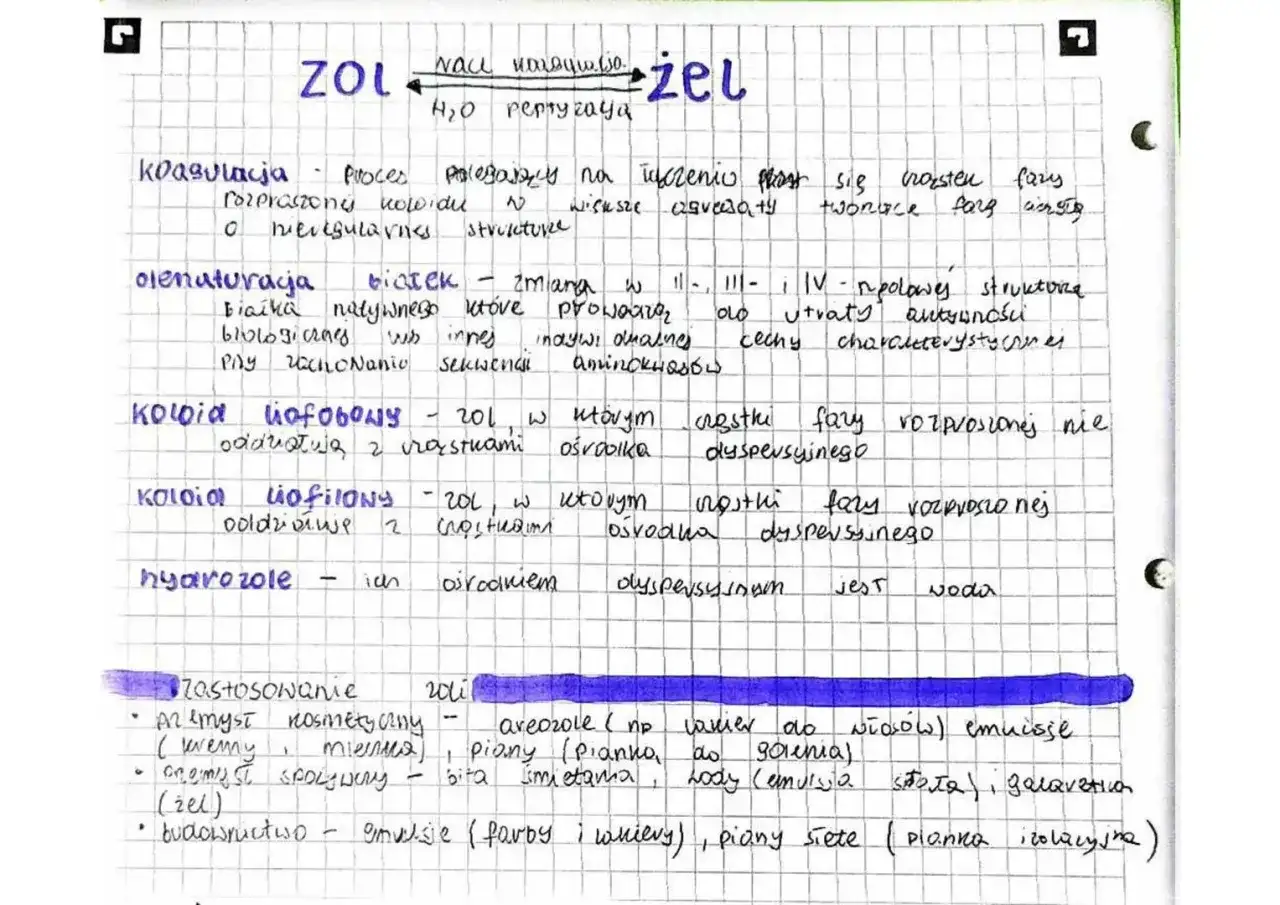 ZOL NaCl koagulacja żel
H₂O peptyzacja
koagulacja - proces polegający na łączeniu się cząstek fazy
rozproszonej koloidu w większe agregaty tworzące fazę ciągłą
o nieregularnej strukturze
denaturacja białek - zmiana w II-, III- i IV-rzędowej strukturze
białka natywnego które prowadzą do utraty aktywności
biologicznej lub innej indywidualnej cechy charakterystycznej
przy zachowaniu sekwencji aminokwasów
koloid liofobowy - zol, w którym cząstki fazy rozproszonej nie
oddziałują z cząstkami ośrodka dyspersyjnego
koloid liofilowy - zol, w którym cząstki fazy rozproszonej
oddziałuje z cząstkami ośrodka dyspersyjnego
hydrozole - ich ośrodkiem dyspersyjnym jest woda
Zastosowanie zoli
• przemysł kosmetyczny - areozole (np lakier do włosów) emulsje
(kremy i mleczka), piany (pianka do golenia)
• przemysł spożywczy - bita śmietana, lody (emulsja stała), galaretka
(żel)
• budownictwo - emulsje (farby i lakiery), piany stałe (pianka izolacyjna)